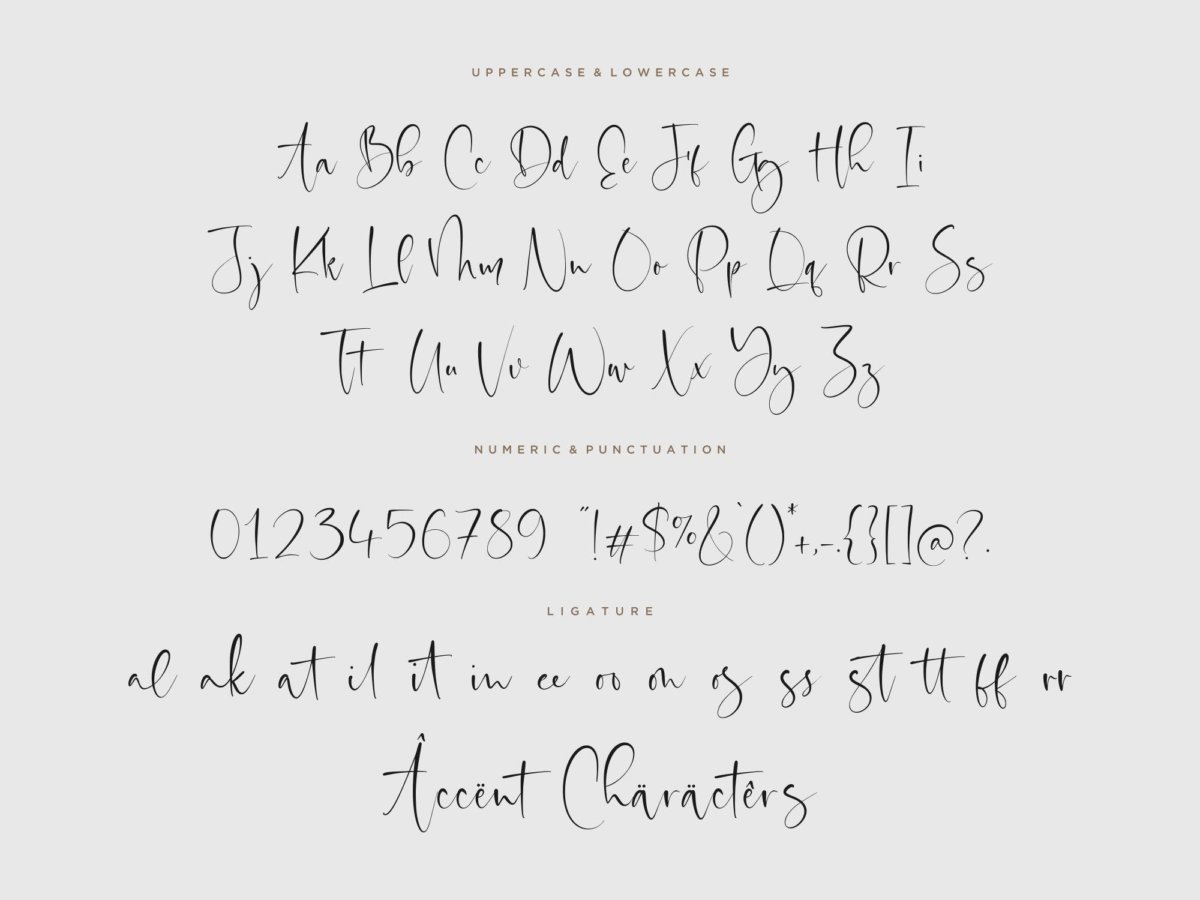 UPPERCASE & LOWERCASE
Aa Bb Cc Dd Ee Ff Gg Hh Ii
Jj Kk Ll Mm Nn Oo Pp Qq Rr Ss
Tt Uu Vv Ww Xx Yy Zz
NUMERIC & PUNCTUATION
0123456789 "!#$%&`()*+,-.{}[]@?.
LIGATURE
al ak at il it in ee oo on os ss st tt ff rr
Âccënt Chäräctêrs